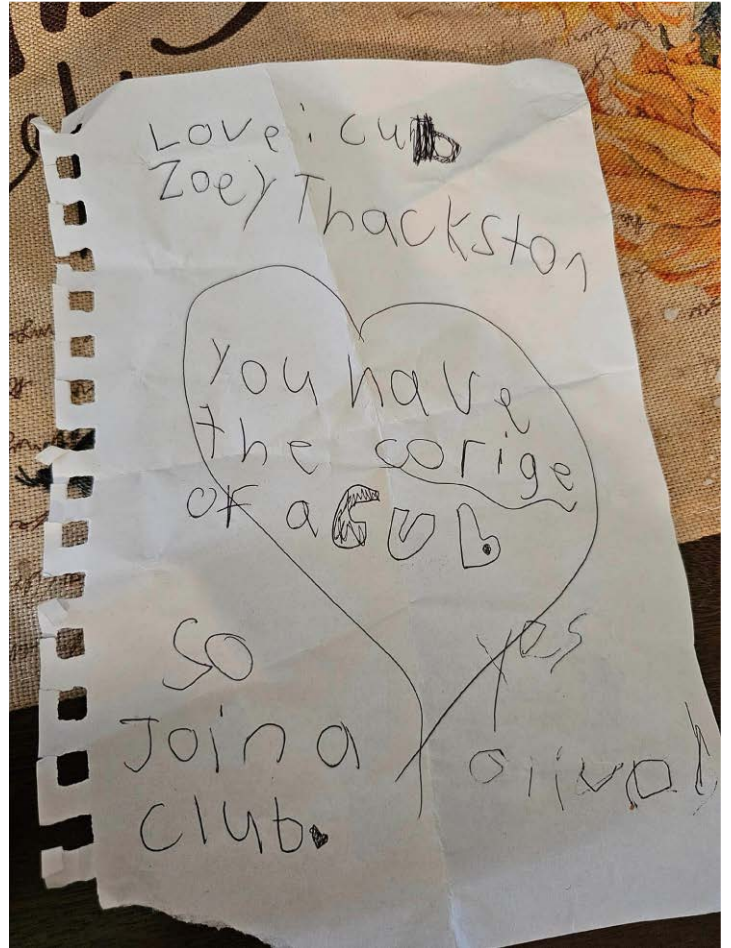 Love: cub
Zoey Thackston
you have
the corige
of a CUb
so
Join a
club.
yes